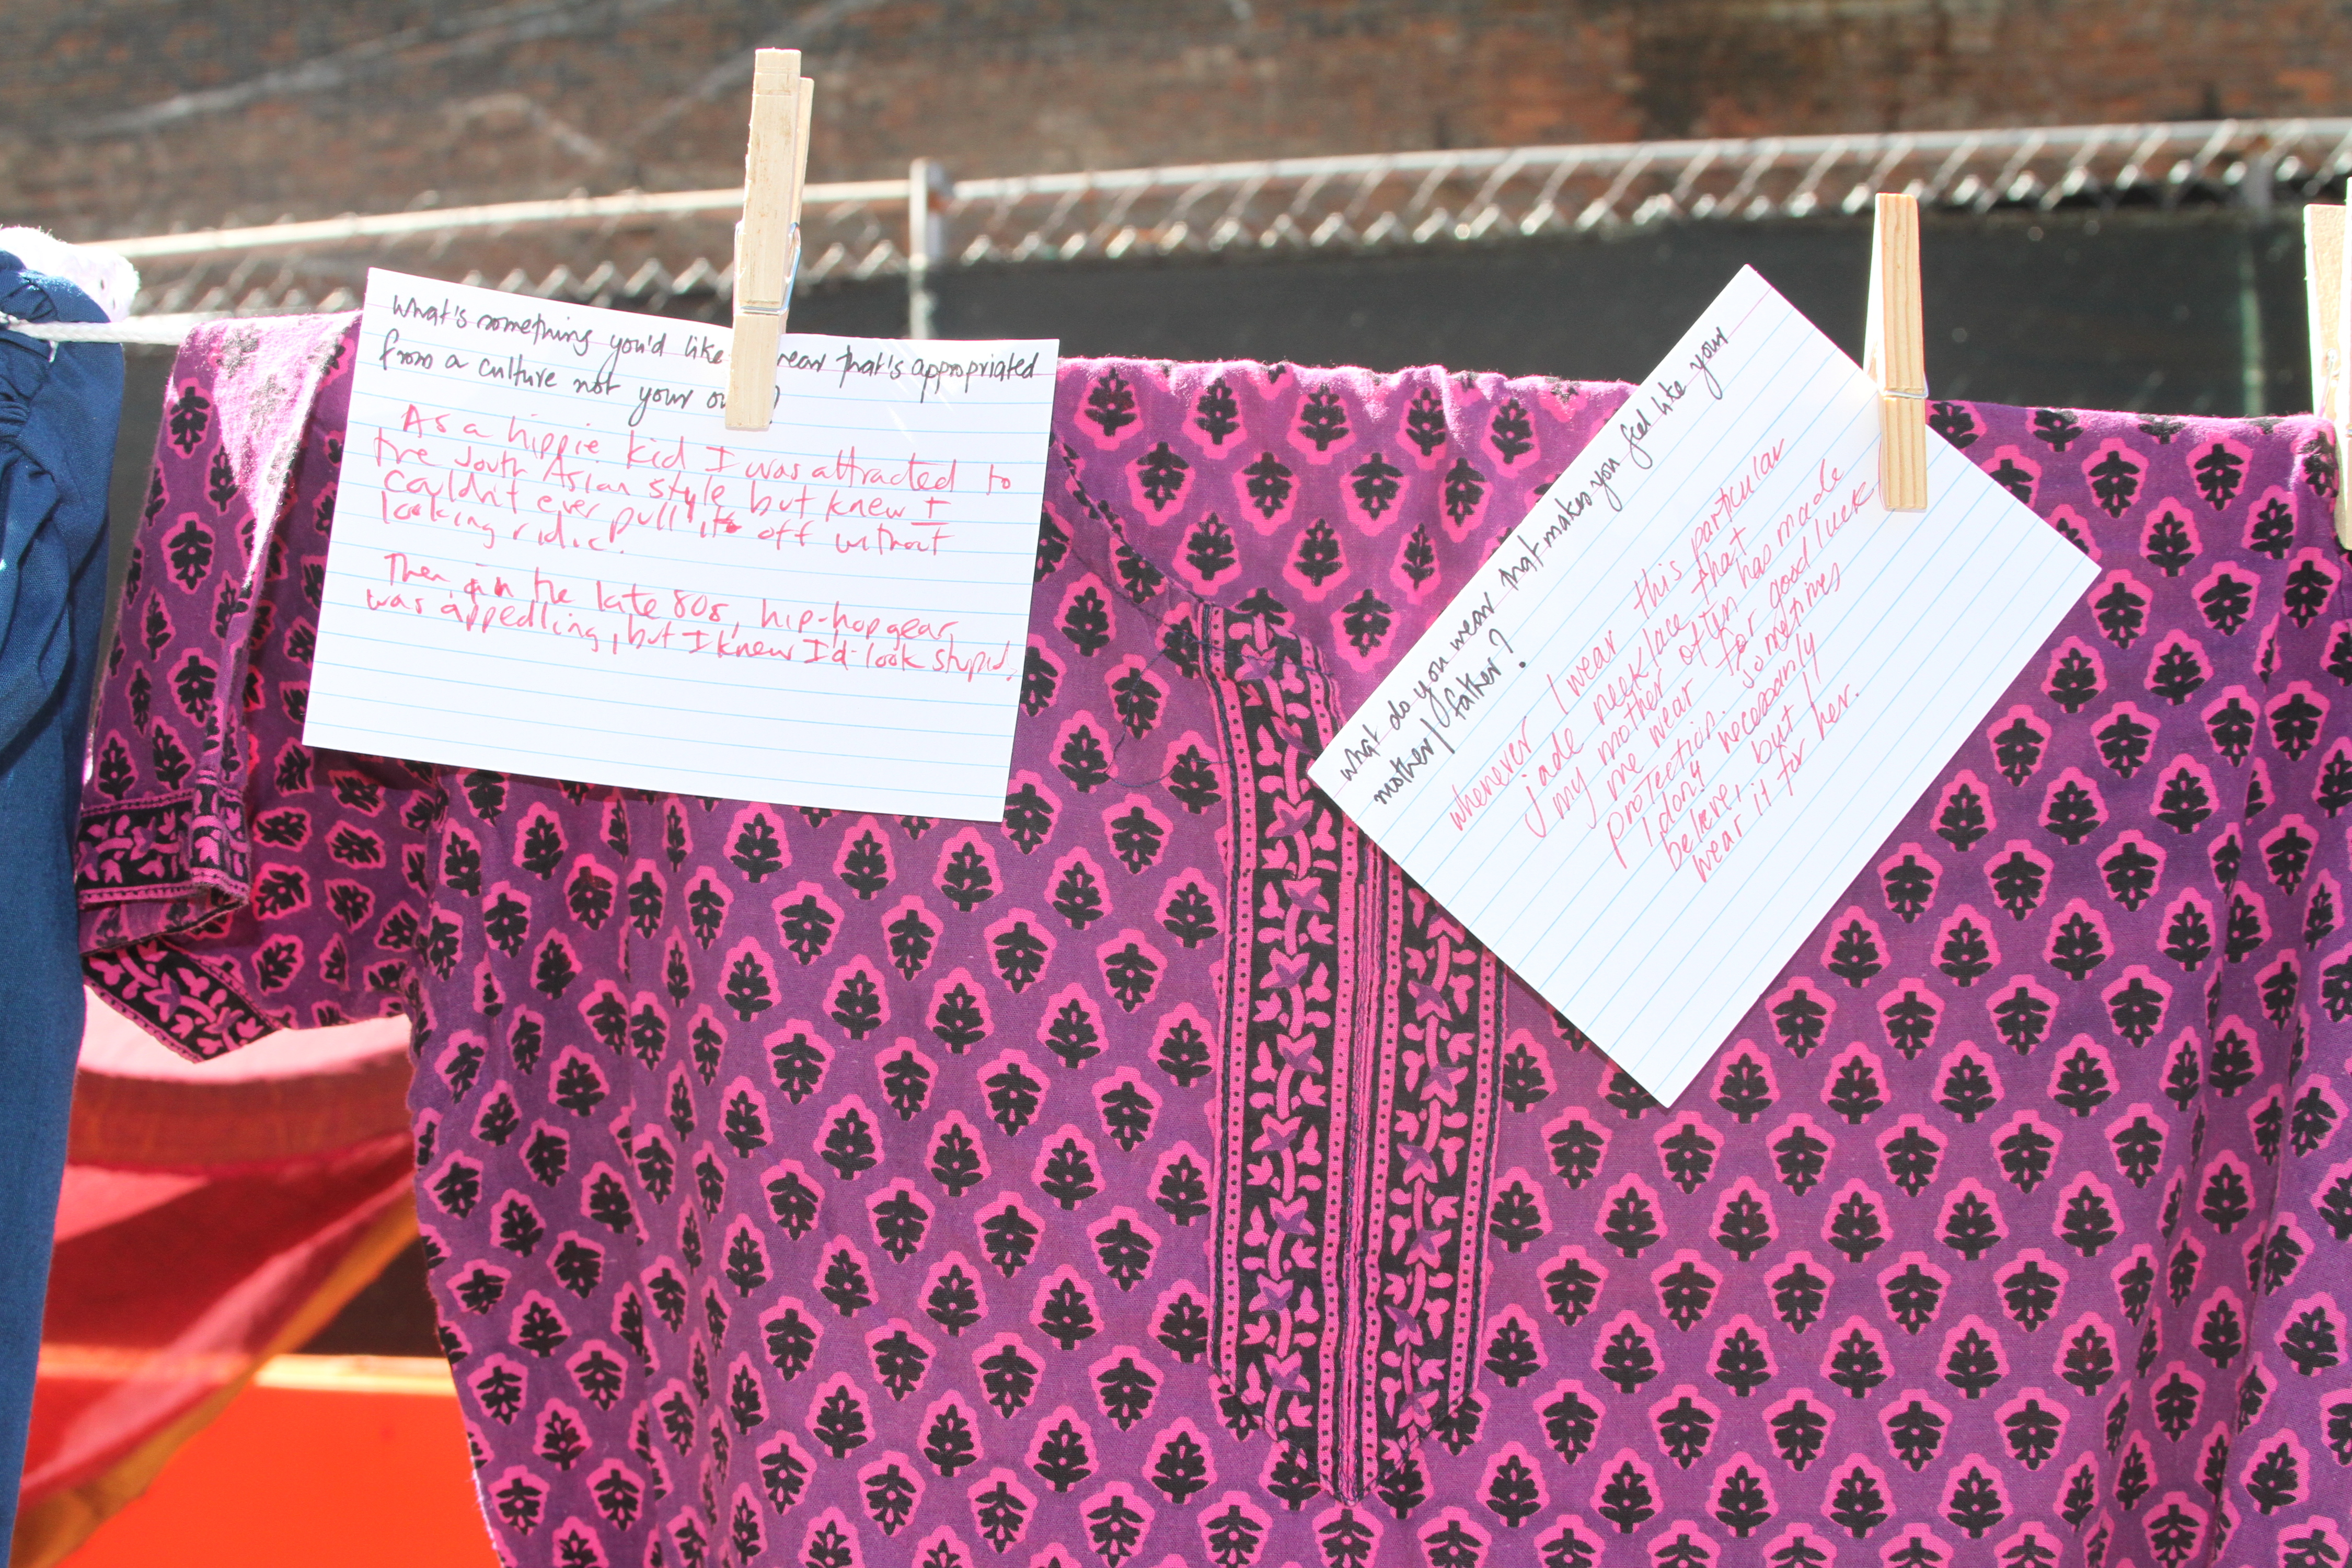 What's something you'd like wear that's appropriated
from a culture not your
As a hippie kid I was attracted to
the South Asian style but knew I
couldn't ever pull it off without
looking ridic!
Then, in the late 80s, hip-hop gear
was appealing, but I knew I'd look stupid!
What do you wear that makes you feel like your
mother/father?
whenever I wear this particular
jade necklace that
my mother often has made
me wear for good luck
protection. sometimes
I don't necessarily
believe, but I
wear it for her.